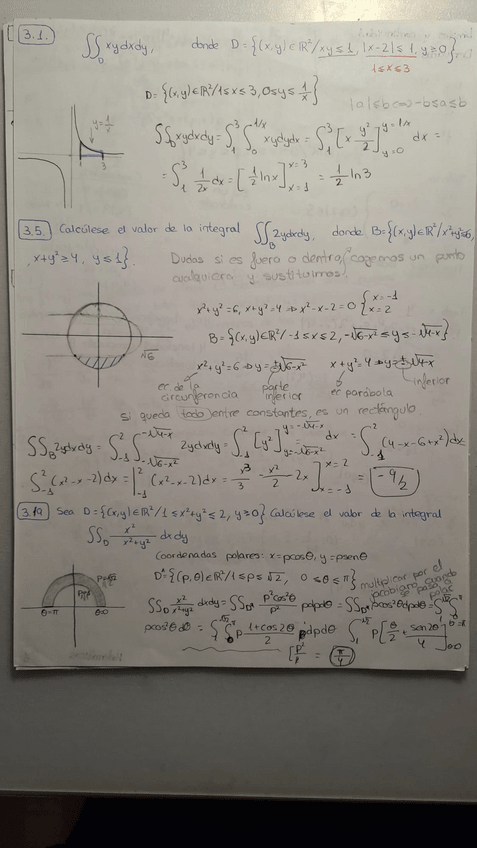 3.1. ∬_D xydxdy, donde D = {(x,y)∈ℝ²/xy≤1, |x-2|≤1, y≥0}
1≤x≤3
D = {(x,y)∈ℝ²/1≤x≤3, 0≤y≤1/x}
|a|≤b ⇔ -b≤a≤b
y=1/x
1 3
∬_D xydxdy = ∫_1^3 ∫_0^{1/x} xydydx = ∫_1^3 [x y²/2]_{y=0}^{y=1/x} dx =
= ∫_1^3 1/2x dx = [1/2 lnx]_{x=1}^{x=3} = 1/2 ln3
3.5. Calcúlese el valor de la integral ∬_B 2ydxdy, donde B={(x,y)∈ℝ²/x²+y²≤6,
x+y²≥4, y≤1}.
Dudas si es fuera o dentro, cogemos un punto
cualquiera y sustituimos.
x²+y²=6, x+y²=4 ⇒ x²-x-2=0 { x=-1 x=2
√6
B={(x,y)∈ℝ²/-1≤x≤2, -√6-x² ≤y≤ -√4-x}
x²+y²=6 ⇒ y=±√6-x² x+y²=4 ⇒ y=±√4-x
ec de la circunferencia parte inferior ec parábola inferior
si queda todo entre constantes, es un rectángulo
∬_B 2ydxdy = ∫_{-1}^2 ∫_{-√6-x²}^{-√4-x} 2ydydx = ∫_{-1}^2 [y²]_{y=-√6-x²}^{y=-√4-x} dx = ∫_{-1}^2 (4-x-6+x²)dx=
∫_{-1}^2 (x²-x-2)dx = ∫_{-1}^2 (x²-x-2)dx = x³/3 - x²/2 - 2x ]_{x=-1}^{x=2} = -9/2
3.19 Sea D={(x,y)∈ℝ²/1≤x²+y²≤2, y≥0} Calcúlese el valor de la integral
∬_D x²/x²+y² dxdy
Coordenadas polares: x=ρcosθ, y=ρsenθ
D*={(ρ,θ)∈ℝ²/1≤ρ≤√2, 0≤θ≤π}
multiplicar por el jacobiano cuando se pasa a polar
ρ=√2
θ=π θ=0
∬_D x²/x²+y² dxdy = ∬_D* ρ²cos²θ/ρ² ρdρdθ = ∬_D* ρcos²θdρdθ = ∫_1^√2 ∫_0^π
ρcos²θdθ = ∫_1^√2 ∫_0^π ρ 1+cos2θ/2 dρdθ ∫_1^√2 ρ[θ/2 + sen2θ/4]_{θ=0}^{θ=π}
= π/4